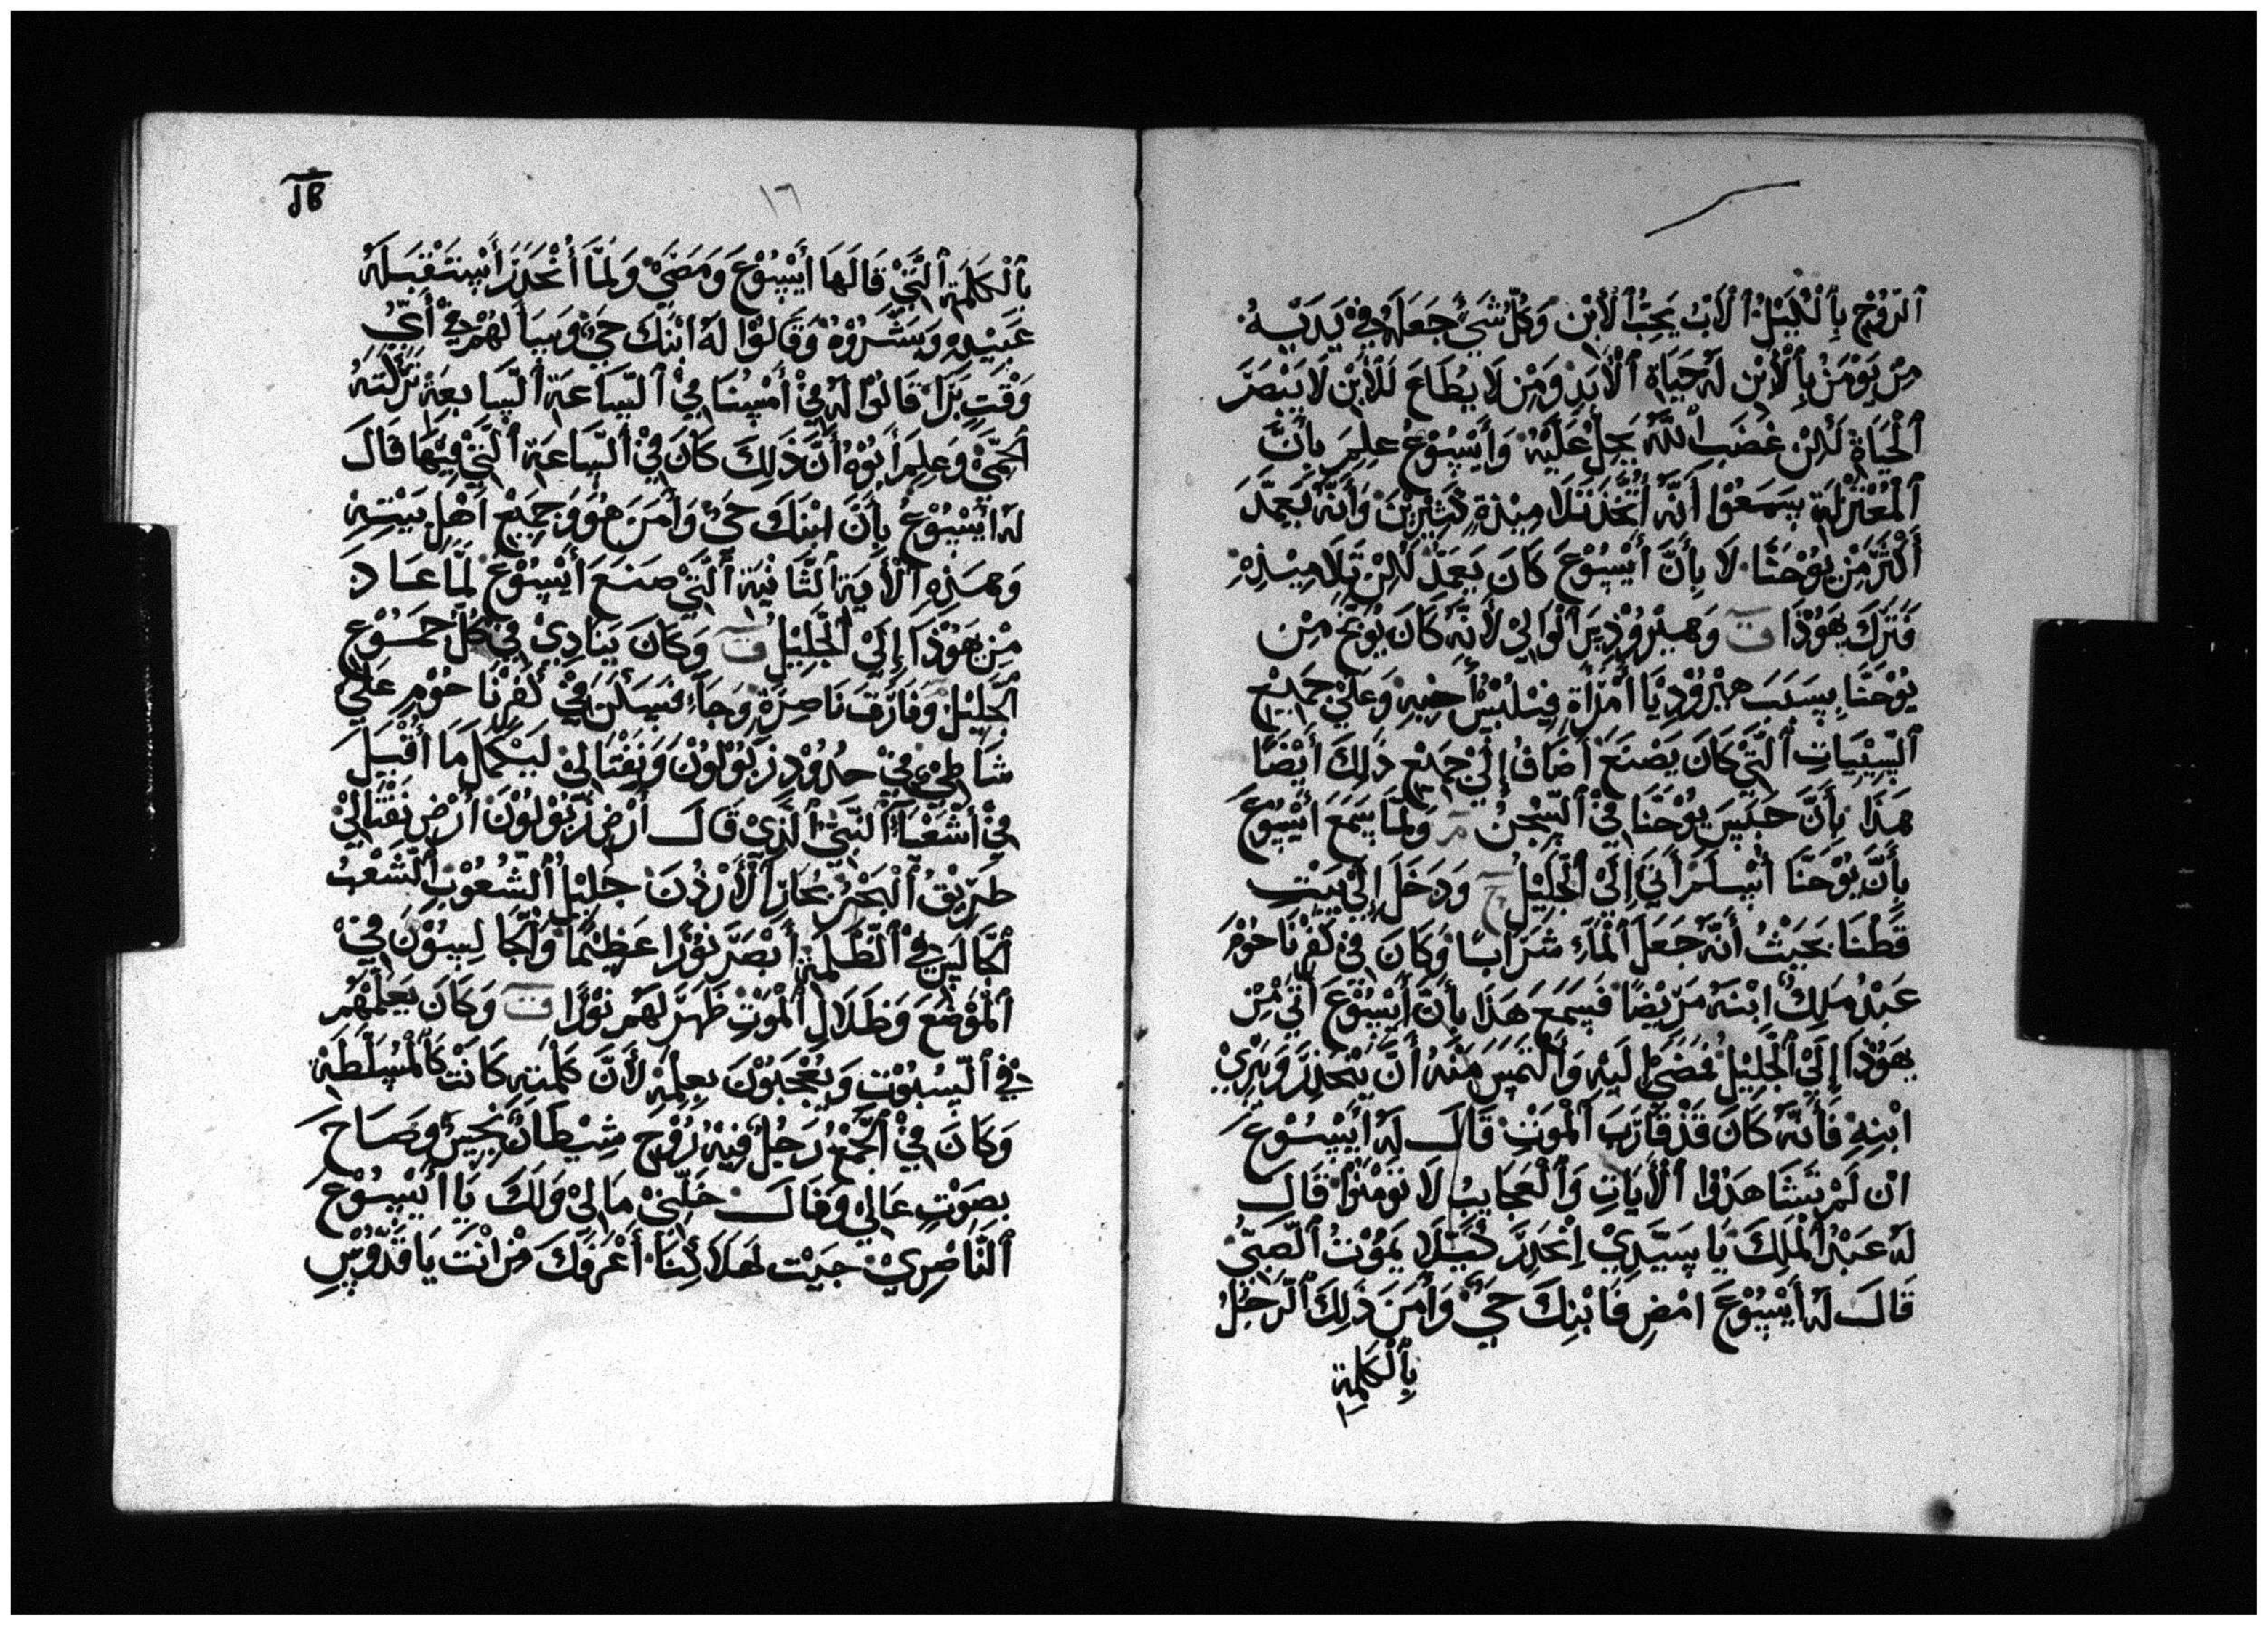 ٱلرُّوْحِ بِٱلْكَيْلِ ٱلْأَبُ يَحِبُّ ٱلْأَبْنِ وَكُلُّ شَيْءٍ جَعَلَهُ فِيْ يَدَيْهِ
مِنْ يَوْمِنُ بِٱلْأَبْنِ لَهُ حَيَاةِ ٱلْأَبَدِ وَمِنْ لَا يُطَاعَ لَلْأَبْنِ لَا يَبْصَرَ
ٱلْحَيَاةِ لَكِنْ غَضَبَ ٱللَّهِ يَحِلُّ عَلَيْهِ وَأَيْسُوْعُ عَلِمَ بِأَنَّ
ٱلْمُعْتَزِلَةِ يَسَمَعُوْا أَنَّهُ أَتَّخَذَ تَلَامِيْذَةٍ كَثِيْرِيْنَ وَأَنَّهُ يَعَمِّدَ
أَكْثَرَ مِّنْ يُوْحَنَّا لَا بِأَنَّ أَيْسُوْعَ كَانَ يَعَمِّدْ لَكِنْ تَلَامِيْذِهِ
فَتَرَكَ يَهُوْذَا ت وَهِيْرُوْدِيَس ٱلْوَالِيْ لَأَنَّهُ كَانَ يُوَبَّخَ مِنْ
يُوْحَنَّا بِسَبَبَ هِيْرُوْدِيَّا أَمْرَأَةِ فِيْلُبُسَ أَخِيْهِ وَعَلَيْ جَمِيْعِ
ٱلسَّيِّيَاتِ ٱلَّتِيْ كَانَ يَصْنَعَ أَضَافُ إِلَيْ جَمِيْعِ ذَلِكَ أَيْضًا
هَذَا بِأَنَّ حَبَسَ يُوْحَنَّا فِيْ ٱلسِّجْنُ مر وَلَمَّا سَمَعَ أَيْسُوْعَ
بِأَنَّ يُوْحَنَّا أُسْلَمَ أَتَيَ إِلَيْ ٱلْجَلِيْلِ ح وَدَخَلَ إِلَيْ بَيْتِ
قَطْنَا بَحَيْثُ أَنَّهُ جَعَلَ ٱلْمَاءَ شَرَابًا وَكَانَ فِيْ كَفَرْنَاحُوْمَ
عَبْدُ مَلِكٌ ابْنَهُ مَرِيْضًا فَسَمَعَ هَذَا بِأَنَّ أَيْسُوْعَ أَتَيَ مِّنْ
يَهُوْذَا إِلَيْ ٱلْجَلِيْلِ فَمَضَيَ إِلَيْهِ وَٱلْتَمَسَ مَنْهُ أَنْ يَنْحَدِرَ وَيَبْرِيْ
ابْنِهِ فَأَنَّهُ كَانَ قَدْ قَارَبَ ٱلْمَوْتِ قَالَ لَهُ أَيْسُوْعَ
ان لَمْ تَشَاهَدُوْا ٱلْأَيَاتِ وَٱلْعَجَايِبُ لَا تَوْمَنُوْا قَالَ
لَهُ عَبْدُ ٱلْمَلِكَ يَا سَيِّدِيْ اِنْحَدِرَ كَيْلَا يَمُوْتُ ٱلصَّبِيُّ
قَالَ لَهُ أَيْسُوْعَ امْضِ فَابْنِكَ حَيٌّ وَأَمَنَ ذَلِكَ ٱلرَّجُلُ
بِٱلْكَلِمَةِ
١٦
بِٱلْكَلِمَةِ ٱلَّتِيْ قَالَهَا أَيْسُوْعَ وَمَضَيْ وَلَمَّا أَنْحَدَرَ أَسْتَقْبَلَهُ
عَبِيْدِهِ وَبَشَّرُوْهُ وَقَالُوْا لَهُ ابْنَكَ حَيٌّ وَسَأَلَهُمْ فِيْ أَيِّ
وَقْتٍ بَرَأَ قَالُوْا لَهُ فِيْ أَمْسِنَا فِيْ ٱلسَّاعَةِ ٱلسَّابِعَةِ تَرَكَتْهُ
ٱلْحِمَّيْ وَعَلِمَ أَبُوْهُ أَنَّ ذَلِكَ كَانَ فِيْ ٱلسَّاعَةِ ٱلَّتِيْ فِيْهَا قَالَ
لَهُ أَيْسُوْعُ بِأَنَّ ابْنَكَ حَيٌّ وَأَمَنَ هُوَ وَجَمِيْعَ أَهْلِ بَيْتِهِ
وَهَذِهِ ٱلْأَيَةِ ٱلثَّانِيَةِ ٱلَّتِيْ صَنَعَ أَيْسُوْعَ لَمَّا عَادَ
مِّنْ يَهُوْذَا إِلَيْ ٱلْجَلِيْلِ ت وَكَانَ يَنَادِيْ فِيْ كُلِّ جَمُوْعِ
ٱلْجَلِيْلِ وَفَارَقَ نَاصِرَةٍ وَجَاءَ فَسَكَنَ فِيْ كَفَرْنَاحُوْمِ عَلَيْ
شَاطِيْءٍ فِيْ حُدُوْدِ زَبُوْلُوْنَ وَنَفْتَالِيْ لَيَكْمَلَ مَا أُقْبِلَ
فِيْ أَشَعْيَاءِ ٱلنَّبِيِّ ٱلَّذِيْ قَالَ أَرْضِ زَبُوْلُوْنَ أَرْضِ نَفْتَالِيْ
طَرِيْقُ ٱلْبَحْرِ بِجَازِ ٱلْأَرْدُنَ جَلِيْلُ ٱلشُّعُوْبِ ٱلشَّعْبُ
ٱلْجَالِسِ فِيْ ٱلظُّلْمَةِ أَبْصَرَ نُوْرًا عَظِيْمًا وَٱلْجَالِسُوْنَ فِيْ
ٱلْمَوْضَعَ وَظَلَالِ ٱلْمَوْتِ ظَهَرَ لَهُمْ نُوْرًا ت وَكَانَ يَعَلِّمْهُمْ
فِيْ ٱلسُّبُوْتِ وَيَعْجَبُوْنَ بِعِلْمَهِ لَأَنَّ كَلْمَتِهِ كَانَتْ كَٱلْمُسَلَّطَةِ
وَكَانَ فِيْ ٱلْجَمْعِ رَجُلٌ فِيْهُ رُوْحِ شِيْطَانٌ نَجِسٌ وَصَاحَ
بِصَوْتٍ عَالِيْ وَقَالَ خَلِّنِيْ مَا لِيْ وَلَكَ يَا أَيْسُوْعُ
ٱلنَّاصِرِيْ جِيْتَ لَهَلَاكِنَا أَعْرَفَكَ مَنْ انْتَ يَا قُدُّوْسِ